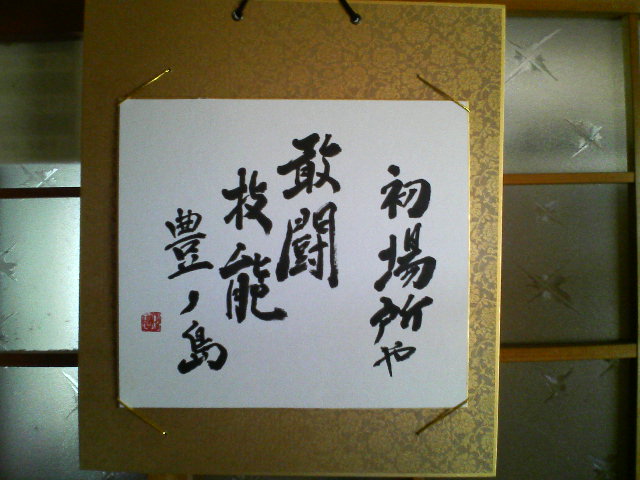 初場所や
敢闘
技能
豊ノ島